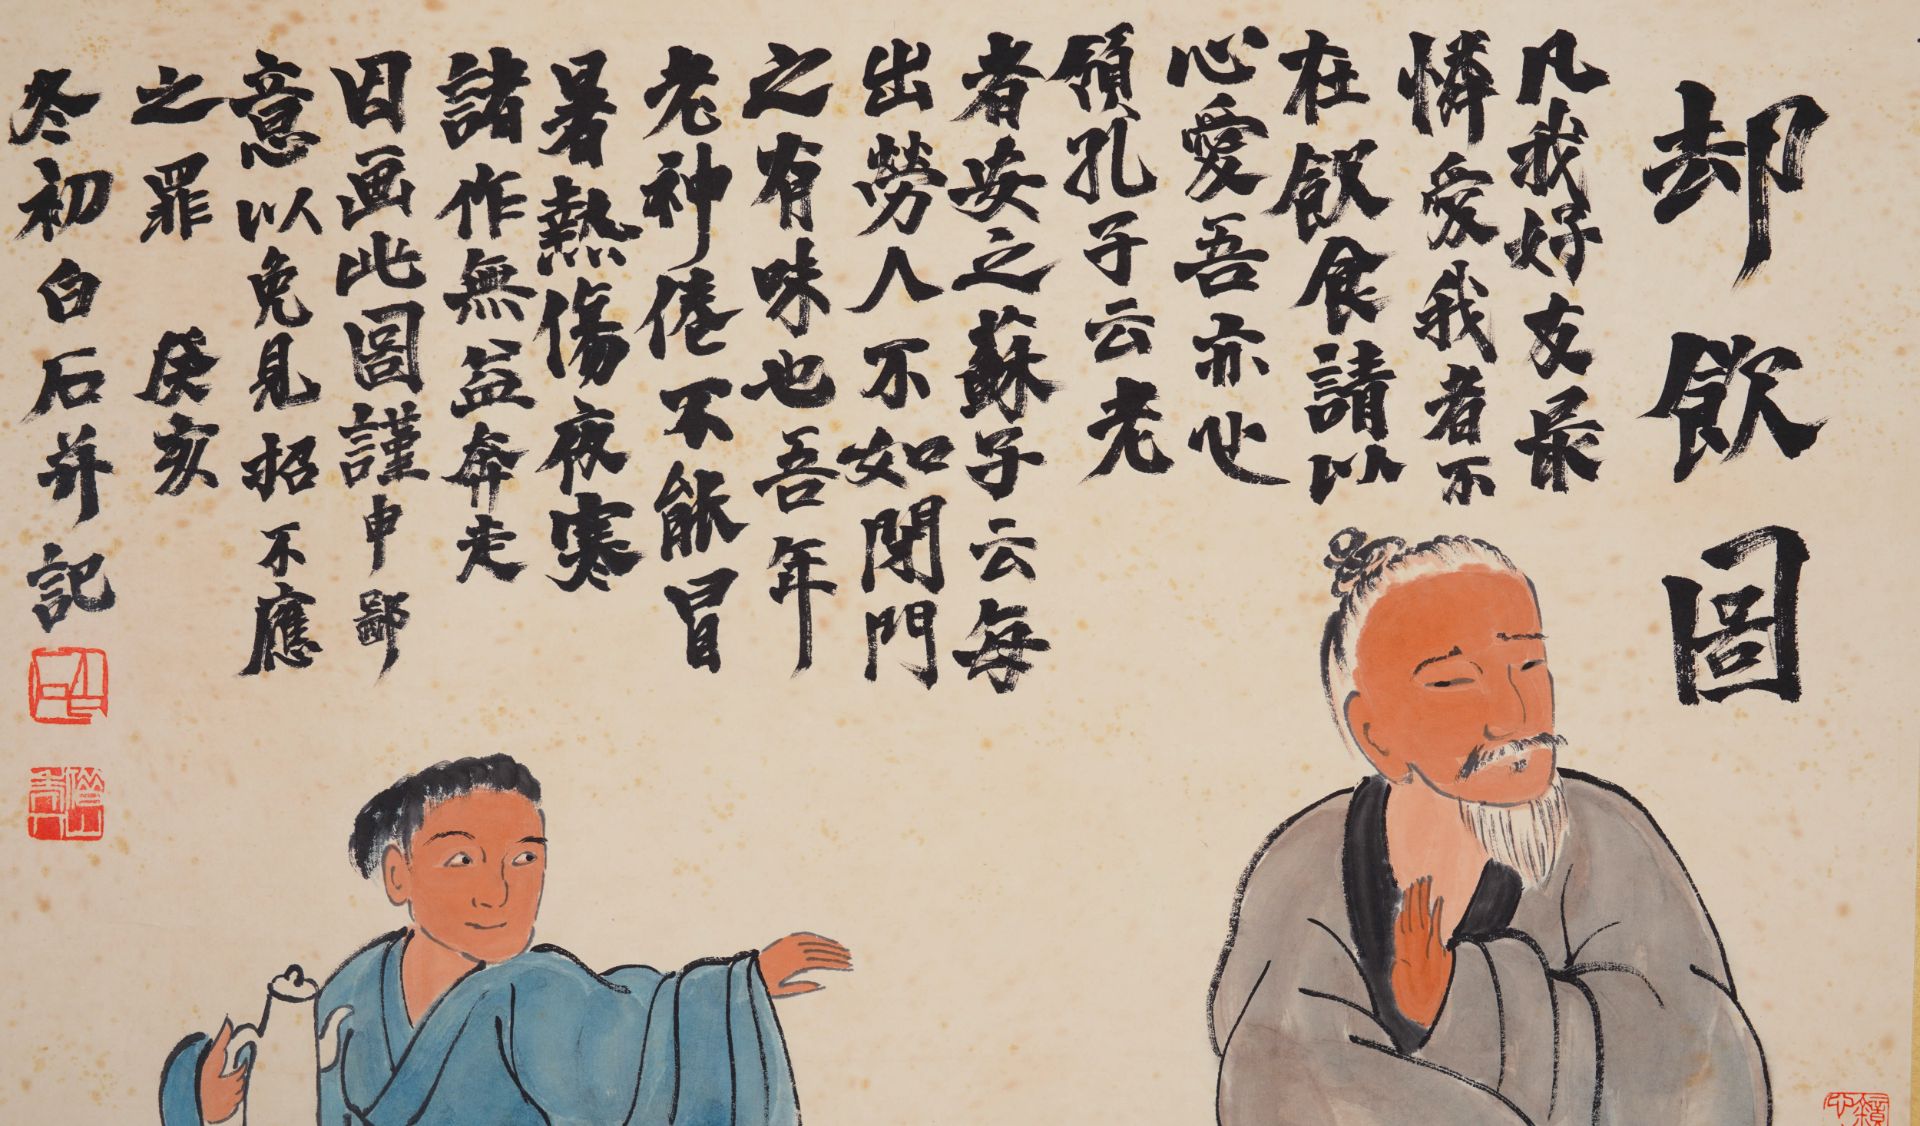 却飲圖
凡我好友最
憐愛我者不
在飲食請以
心愛吾亦心
領孔子云老
者安之蘇子云每
出勞人不如閉門
之有味也吾年
老神倦不能冒
暑熱傷夜寒
諸作無益奔走
因畫此圖謹申鄙
意以免見招不應
之罪 癸亥
冬初白石并記